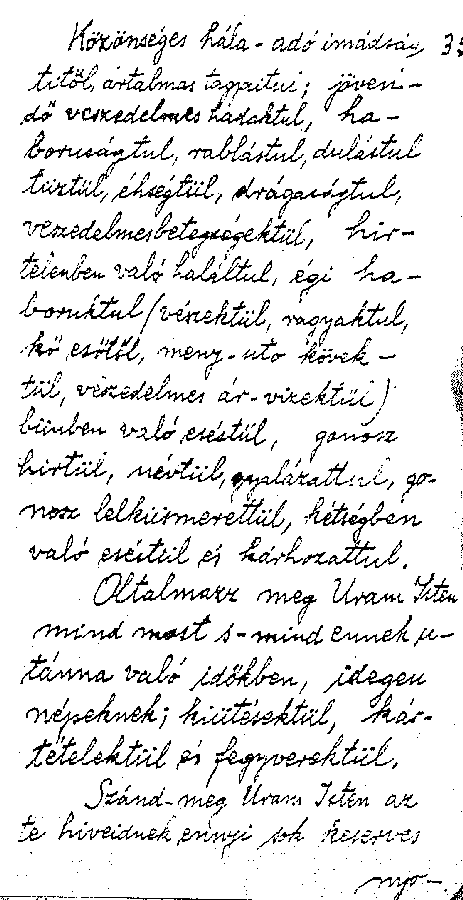 Közönséges hála-adó imádság 35
titöl, ártalmas tagoitui; jöven-
dő veszedelmes hadaktul, ha-
boruságtul, rablástul, dulástul
tüztül, éhségtül, drágaságtul,
veszedelmes betegségektül, hir-
telenben való haláltul, égi ha-
boruktul (vészektül, ragyaktul,
kő esőtől, meny-utő kövek-
tül, veszedelmes ár-vizektül)
bünben való eséstül, gonosz
hirtül, névtül, gyalázattul, go-
nosz lelküismerettül, kétségben
való eséstül és kárhozattul.
Oltalmazz meg Uram Isten
mind most s-mind ennek u-
tánna való időkben, idegen
népeknek; kiütésektül, kár-
tételektül és fegyverektül.
Szánd-meg Uram Isten az
te hiveidnek ennyi sok keserves
nyo-